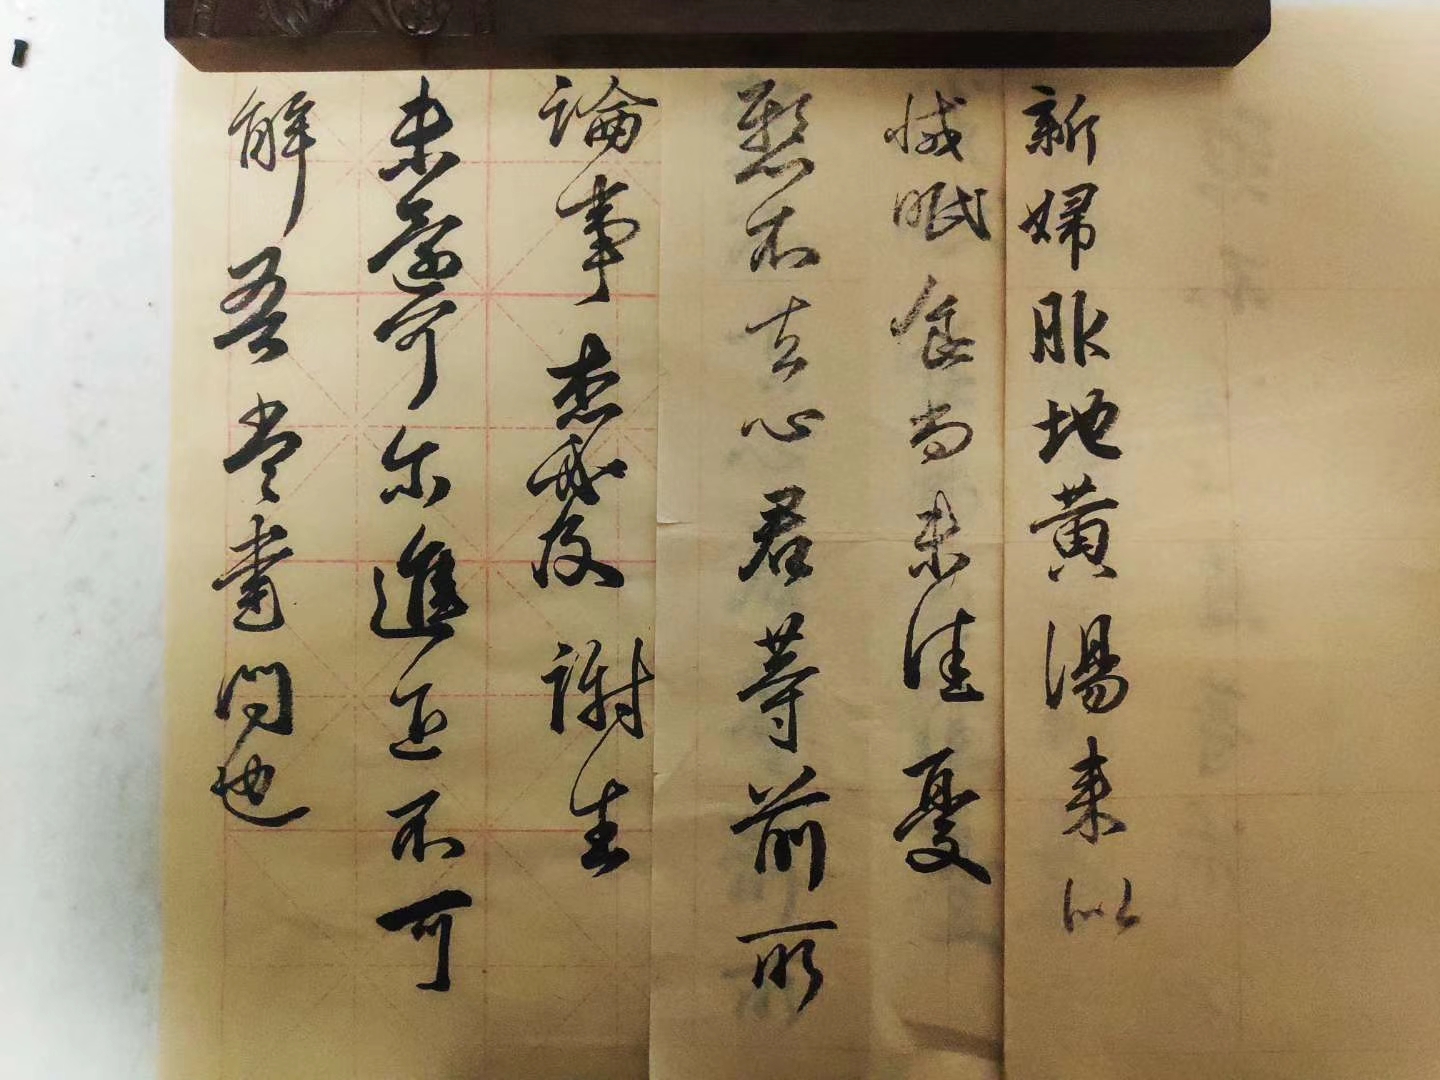 新婦服地黃湯來似
減眠食尚未佳憂
懸不去心君等前所
論事想我及謝生
未還可尔進退不可
解吾當書問也